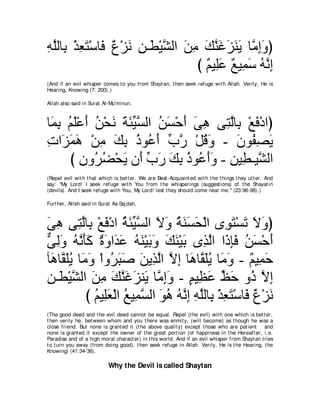 (وَإِمَّا يَنَزَغَنَّكَ مِنَ الشَّيْطَـنِ نَزْغٌ فَاسْتَعِذْ بِاللَّهِ
إِنَّهُ سَمِيعٌ عَلِيمٌ )
(And if an evil whisper comes to you from Shaytan, then seek refuge with Allah. Verily, He is
Hearing, Knowing (7: 200).)
Allah also said in Surat Al-Mu'minun,
(ادْفَعْ بِالَّتِى هِىَ أَحْسَنُ السَّيِّئَةَ نَحْنُ أَعْلَمُ بِمَا
يَصِفُونَ - وَقُلْ رَّبِّ أَعُوذُ بِكَ مِنْ هَمَزَاتِ
الشَّيـطِينِ - وَأَعُوذُ بِكَ رَبِّ أَن يَحْضُرُونِ )
(Repel evil with that which is better. We are Best-Acquainted with the things they utter. And
say: "My Lord! I seek refuge with You from the whisperings (suggestions) of the Shayatin
(devils). And I seek refuge with You, My Lord! lest they should come near me." (23:96-98).)
Further, Allah said in Surat As-Sajdah,
(وَلاَ تَسْتَوِى الْحَسَنَةُ وَلاَ السَّيِّئَةُ ادْفَعْ بِالَّتِى هِىَ
أَحْسَنُ فَإِذَا الَّذِى بَيْنَكَ وَبَيْنَهُ عَدَاوَةٌ كَأَنَّهُ وَلِىٌّ
حَمِيمٌ - وَمَا يُلَقَّاهَا إِلاَّ الَّذِينَ صَبَرُواْ وَمَا يُلَقَّاهَآ
إِلاَّ ذُو حَظِّ عَظِيمٍ - وَإِمَّا يَنزَغَنَّكَ مِنَ الشَّيْطَـنِ
نَزْغٌ فَاسْتَعِذْ بِاللَّهِ إِنَّهُ هُوَ السَّمِيعُ الْعَلِيمُ )
(The good deed and the evil deed cannot be equal. Repel (the evil) with one which is better,
then verily he, between whom and you there was enmity, (will become) as though he was a
close friend. But none is granted it (the above quality) except those who are patient and
none is granted it except the owner of the great portion (of happiness in the Hereafter, i.e.
Paradise and of a high moral character) in this world. And if an evil whisper from Shaytan tries
to turn you away (from doing good), then seek refuge in Allah. Verily, He is the Hearing, the
Knowing) (41:34-36).
Why the Devil is called Shaytan